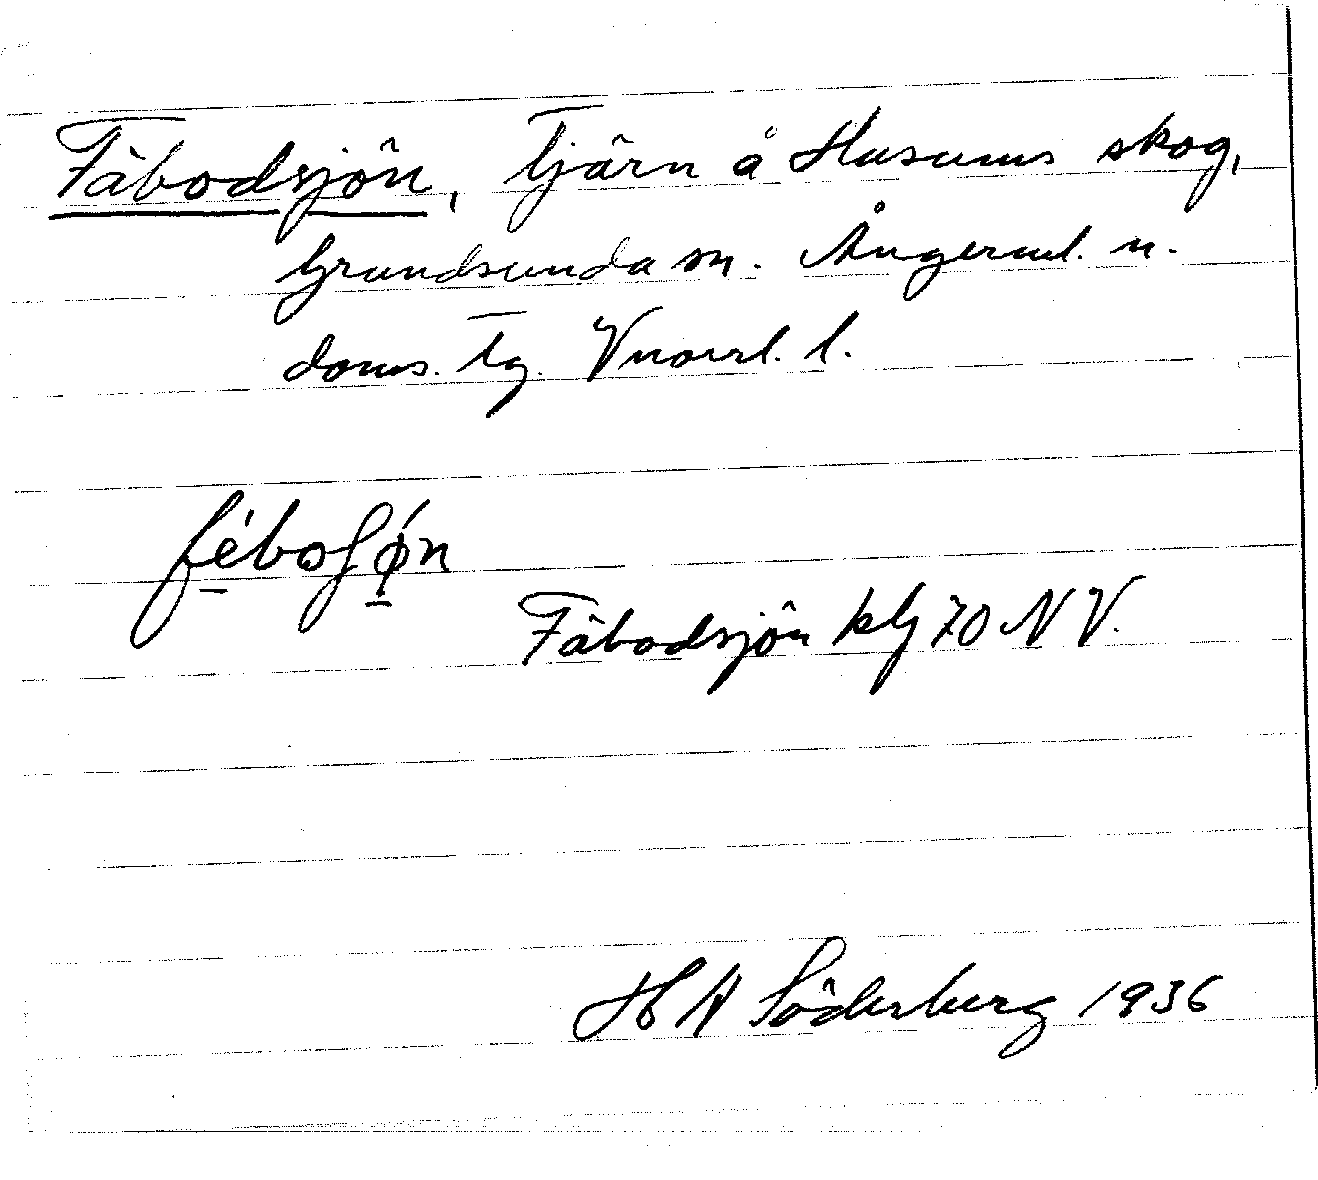 Fäbodsjön, Tjärn å Husums skog,
Grundsunda sn. Ångerml. n.
doms. Tg. Vnorrl. l.
fèboʃǿn
Fäbodsjön blg 70 NV.
H A Söderberg 1936